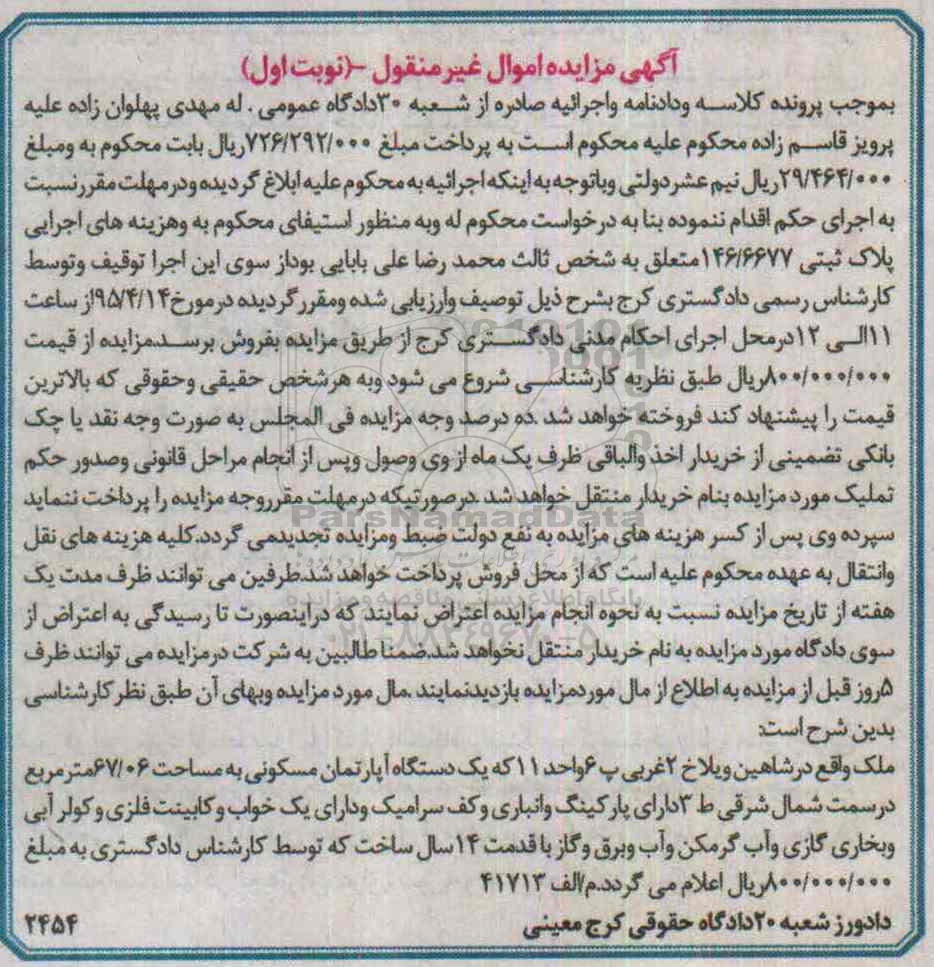 آگهی مزایده اموال غیر منقول -(نوبت اول)
بموجب پرونده کلاسه ودادنامه واجرائیه صادره از شعبه ۳۰دادگاه عمومی . له مهدی پهلوان زاده علیه
پرویز قاسم زاده محکوم علیه محکوم است به پرداخت مبلغ ۷۲۶/۲۹۲/۰۰۰ریال بابت محکوم به ومبلغ
۲۹/۴۶۴/۰۰۰ریال نیم عشردولتی وباتوجه به اینکه اجرائیه به محکوم علیه ابلاغ گردیده ودرمهلت مقررنسبت
به اجرای حکم اقدام ننموده بنا به درخواست محکوم له وبه منظور استیفای محکوم به وهزینه های اجرایی
پلاک ثبتی ۱۴۶/۶۶۷۷متعلق به شخص ثالث محمد رضا علی بابایی بوداز سوی این اجرا توقیف وتوسط
کارشناس رسمی دادگستری کرج بشرح ذیل توصیف وارزیابی شده ومقررگردیده درمورخ۹۵/۴/۱۴از ساعت
۱۱الی ۱۲درمحل اجرای احکام مدنی دادگستری کرج از طریق مزایده بفروش برسد.مزایده از قیمت
۸۰۰/۰۰۰/۰۰۰ریال طبق نظریه کارشناسی شروع می شود وبه هرشخص حقیقی وحقوقی که بالاترین
قیمت را پیشنهاد کند فروخته خواهد شد .ده درصد وجه مزایده فی المجلس به صورت وجه نقد یا چک
بانکی تضمینی از خریدار اخذ والباقی ظرف یک ماه از وی وصول وپس از انجام مراحل قانونی وصدور حکم
تملیک مورد مزایده بنام خریدار منتقل خواهد شد .درصورتیکه درمهلت مقرروجه مزایده را پرداخت ننماید
سپرده وی پس از کسر هزینه های مزایده به نفع دولت ضبط ومزایده تجدیدمی گردد.کلیه هزینه های نقل
وانتقال به عهده محکوم علیه است که از محل فروش پرداخت خواهد شد.طرفین می توانند ظرف مدت یک
هفته از تاریخ مزایده نسبت به نحوه انجام مزایده اعتراض نمایند که دراینصورت تا رسیدگی به اعتراض از
سوی دادگاه مورد مزایده به نام خریدار منتقل نخواهد شد.ضمنا طالبین به شرکت درمزایده می توانند ظرف
۵روز قبل از مزایده به اطلاع از مال موردمزایده بازدیدنمایند .مال مورد مزایده وبهای آن طبق نظر کارشناسی
بدین شرح است:
ملک واقع درشاهین ویلاخ ۲غربی پ ۶واحد ۱۱که یک دستگاه آپارتمان مسکونی به مساحت ۶۷/۰۶مترمربع
درسمت شمال شرقی ط ۳دارای پارکینگ وانباری وکف سرامیک ودارای یک خواب وکابینت فلزی وکولر آبی
وبخاری گازی وآب گرمکن وآب وبرق وگاز با قدمت ۱۴سال ساخت که توسط کارشناس دادگستری به مبلغ
۸۰۰/۰۰۰/۰۰۰ریال اعلام می گردد.م/الف ۴۱۷۱۳
دادورز شعبه ۲۰دادگاه حقوقی کرج معینی
۲۴۵۴
ParsNamadData
پایگاه اطلاع رسانی مناقصه و مزایده
۰۲۱-۸۸۳۴۹۶۷۰-۵